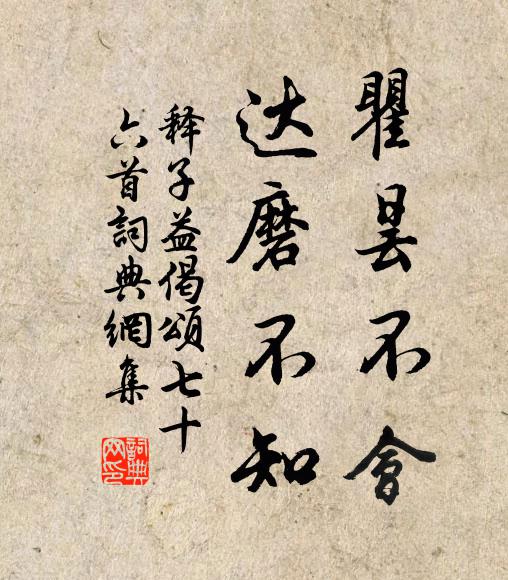 瞿昙不會
达磨不知
释子益偈頌七十
六首詞典網集
詞典
网印